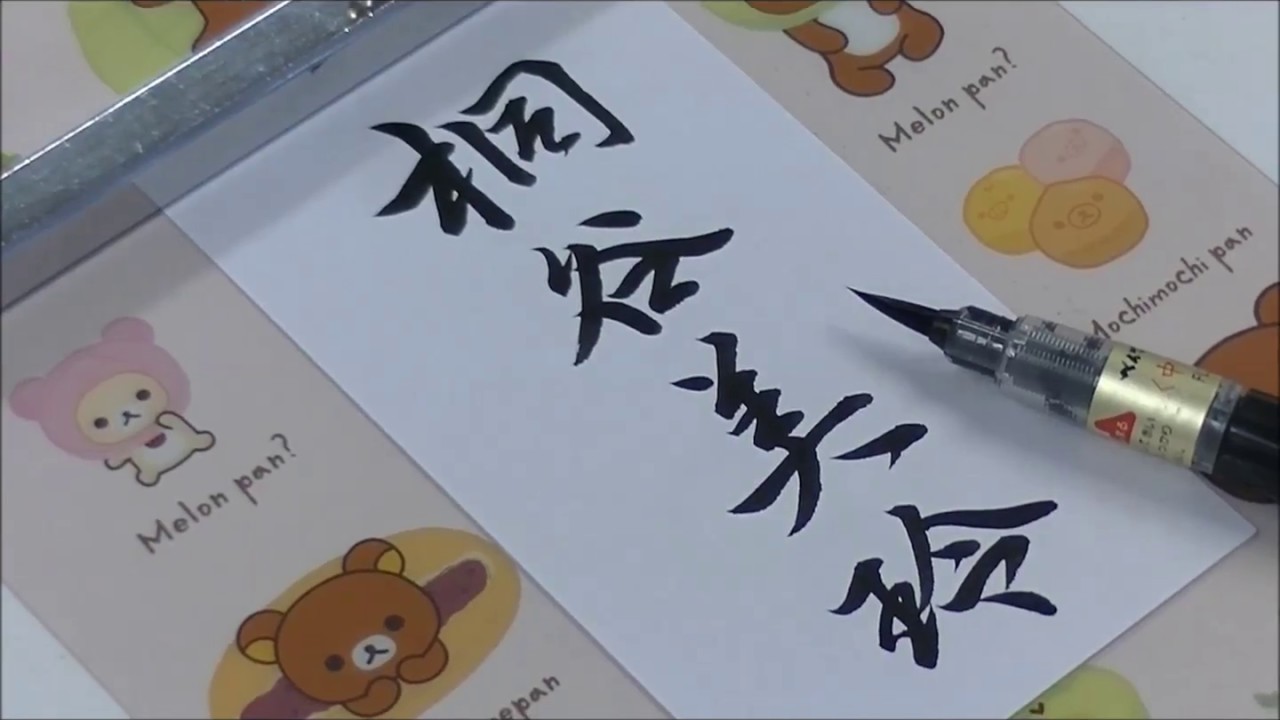 桐谷美玲
Melon pan?
Mochimochi pan
Melon pan?